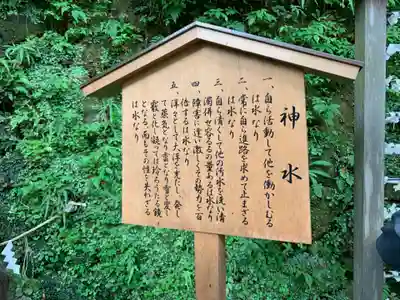 神水
一、自ら活動して他を働かしむる
は水なり
二、常に自ら進路を求めて止まざる
は水なり
三、自ら清くして他の汚水を洗い清
濁併せ容るるの量あるは水なり
四、障害に逢い激しくその勢力を百
倍するは水なり
五、洋々として大洋を充たし、発し
て蒸気となり雲となり雪と変し
霰と化し凝っては玲ろうたる鏡
となる而もその性を失わざる
は水なり